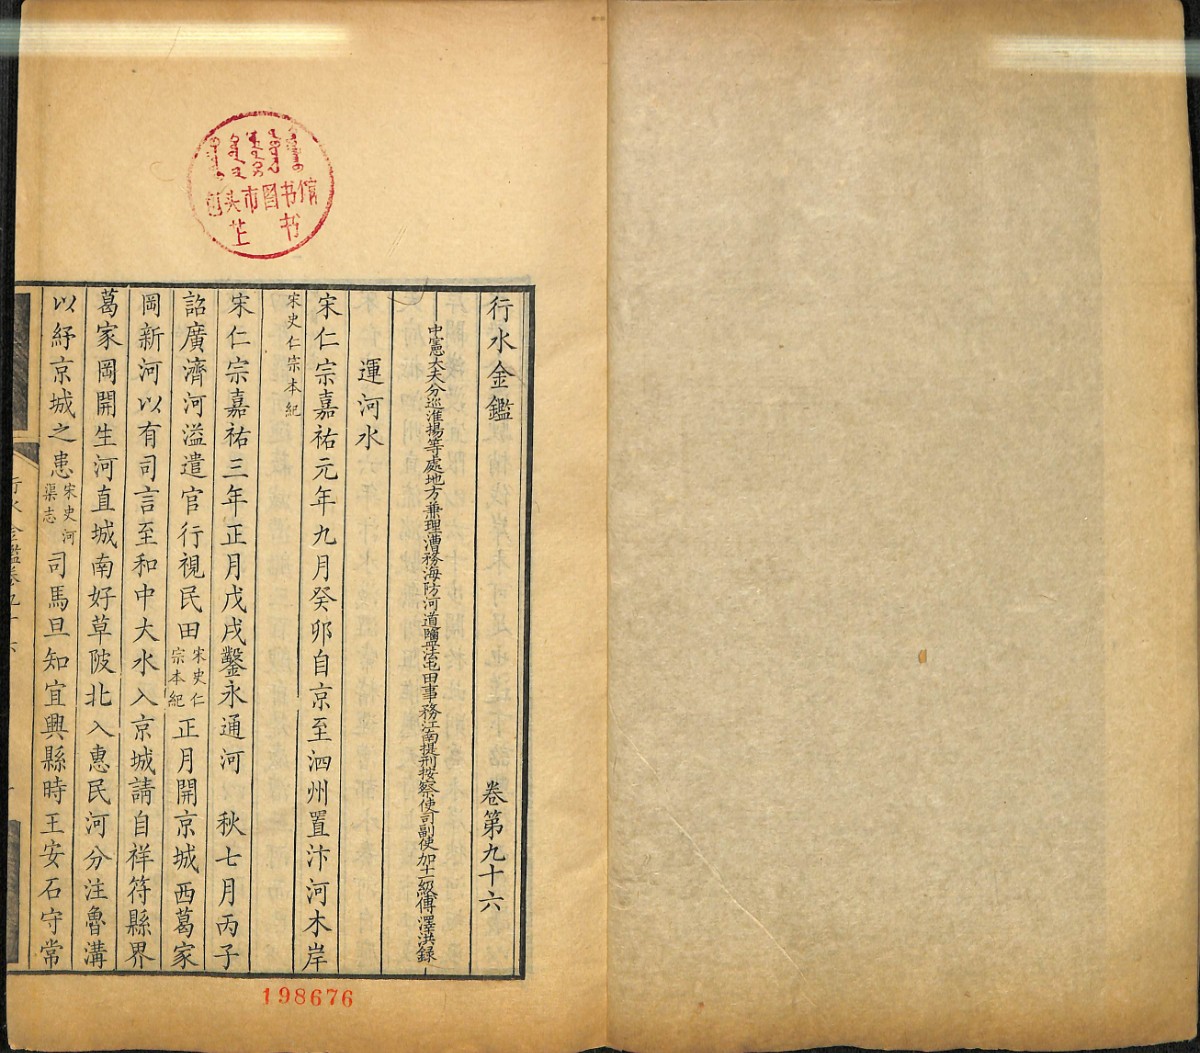 行水金鑑 卷第九十六
中憲大夫分巡淮揚等處地方兼理漕務海防河道鹽法屯田事務江南提刑按察使司副使加十一級傅澤洪録
運河水
宋仁宗嘉祐元年九月癸卯自京至泗州置汴河木岸
宋史仁宗本紀
宋仁宗嘉祐三年正月戊戌鑿永通河 秋七月丙子
詔廣濟河溢遣官行視民田宋史仁宗本紀正月開京城西葛家
岡新河以有司言至和中大水入京城請自祥符縣界
葛家岡開生河直城南好草陂北入惠民河分注魯溝
以紓京城之患宋史河渠志司馬旦知宜興縣時王安石守常
行水金鑑卷九十六
包头市图书馆
书
198676